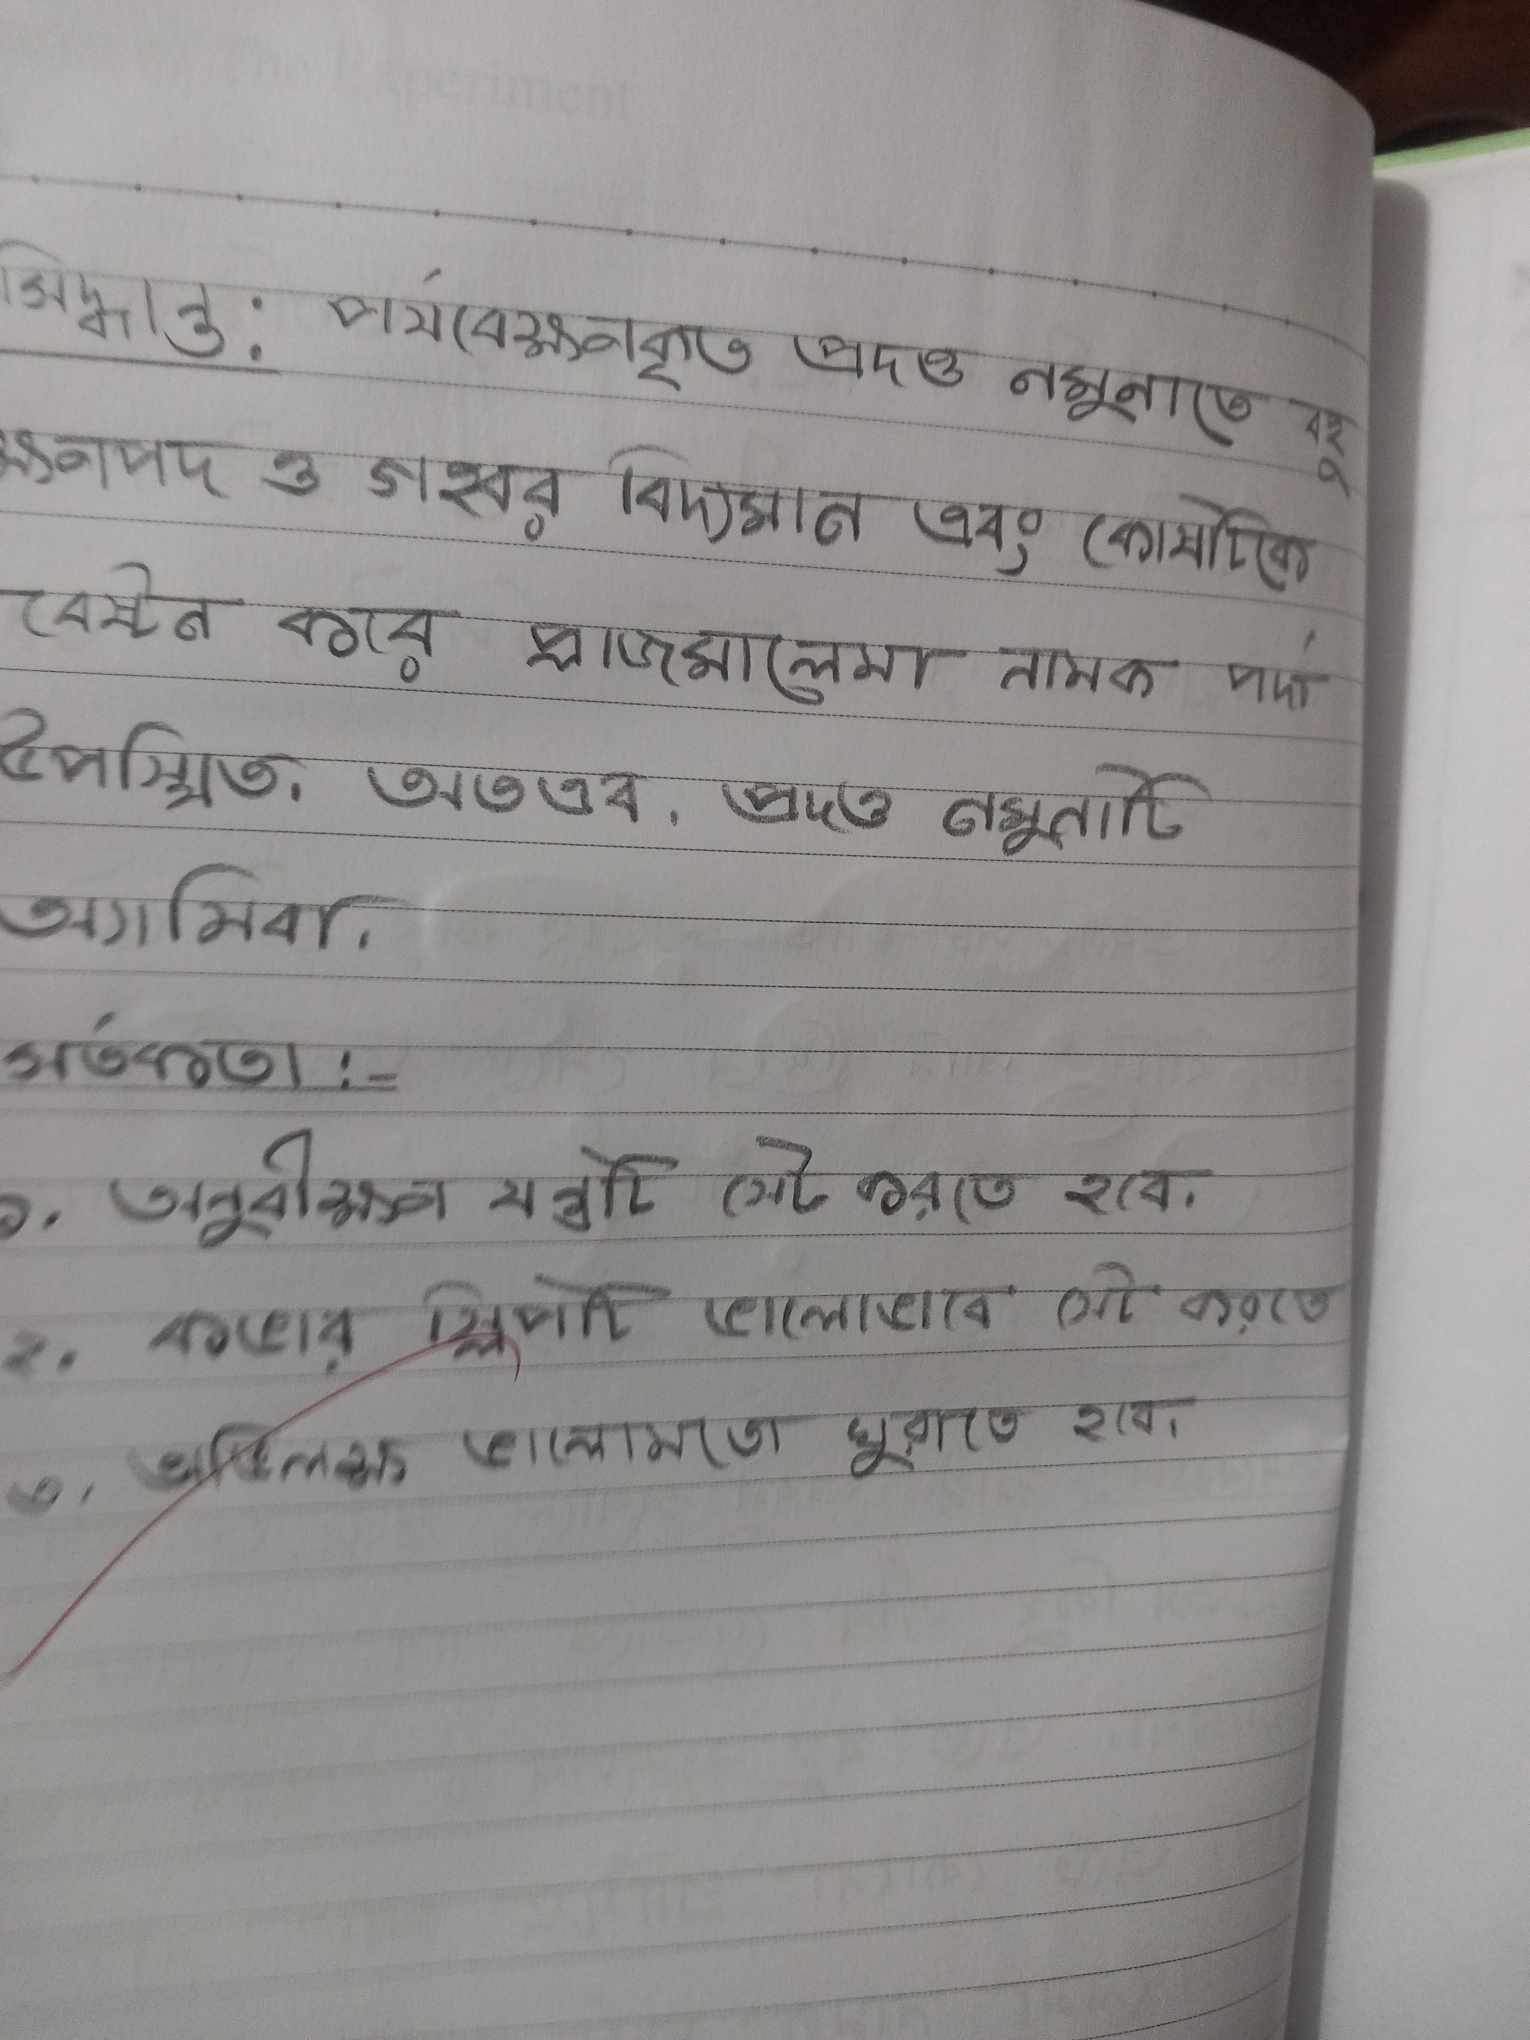 The Experiment
সিদ্ধান্ত: পর্যবেক্ষনকৃত প্রদত্ত নমুনাতে বহু
ক্ষনপদ ও গহ্বর বিদ্যমান এবং কোষটিকে
বেষ্টন করে প্লাজমালেমা নামক পর্দা
উপস্থিত. অতএব. প্রদত্ত নমুনাটি
অ্যামিবা.
সর্তকতা :-
১. অনুবীক্ষন যন্ত্রটি সেট করতে হবে.
২. কভার স্লিপটি ভালোভাবে সেট করতে
৩. অভিলক্ষ ভালোমতো ঘুরাতে হবে.